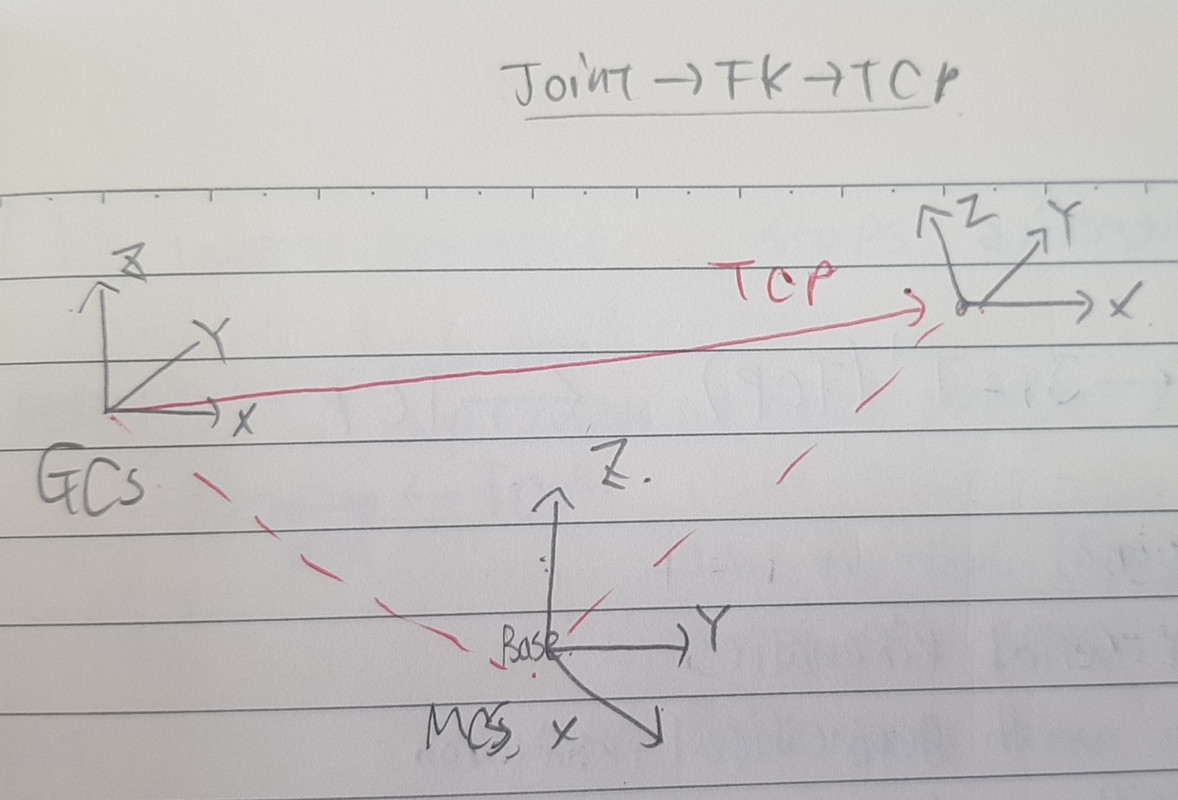 Joint → FK → TCP
Z
Z Y
TCP
Y
X
X
GCS
Z.
Base
Y
MCS, X